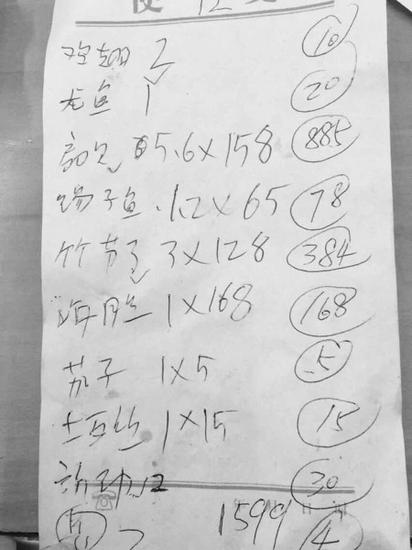 鸡翅 2 10
龙鱼 1 20
5.6×158 885
鱼 1.2×65 78
竹节 3×128 384
海胆 1×168 168
茄子 1×5 5
土豆丝 1×15 15
12 30
1599 4